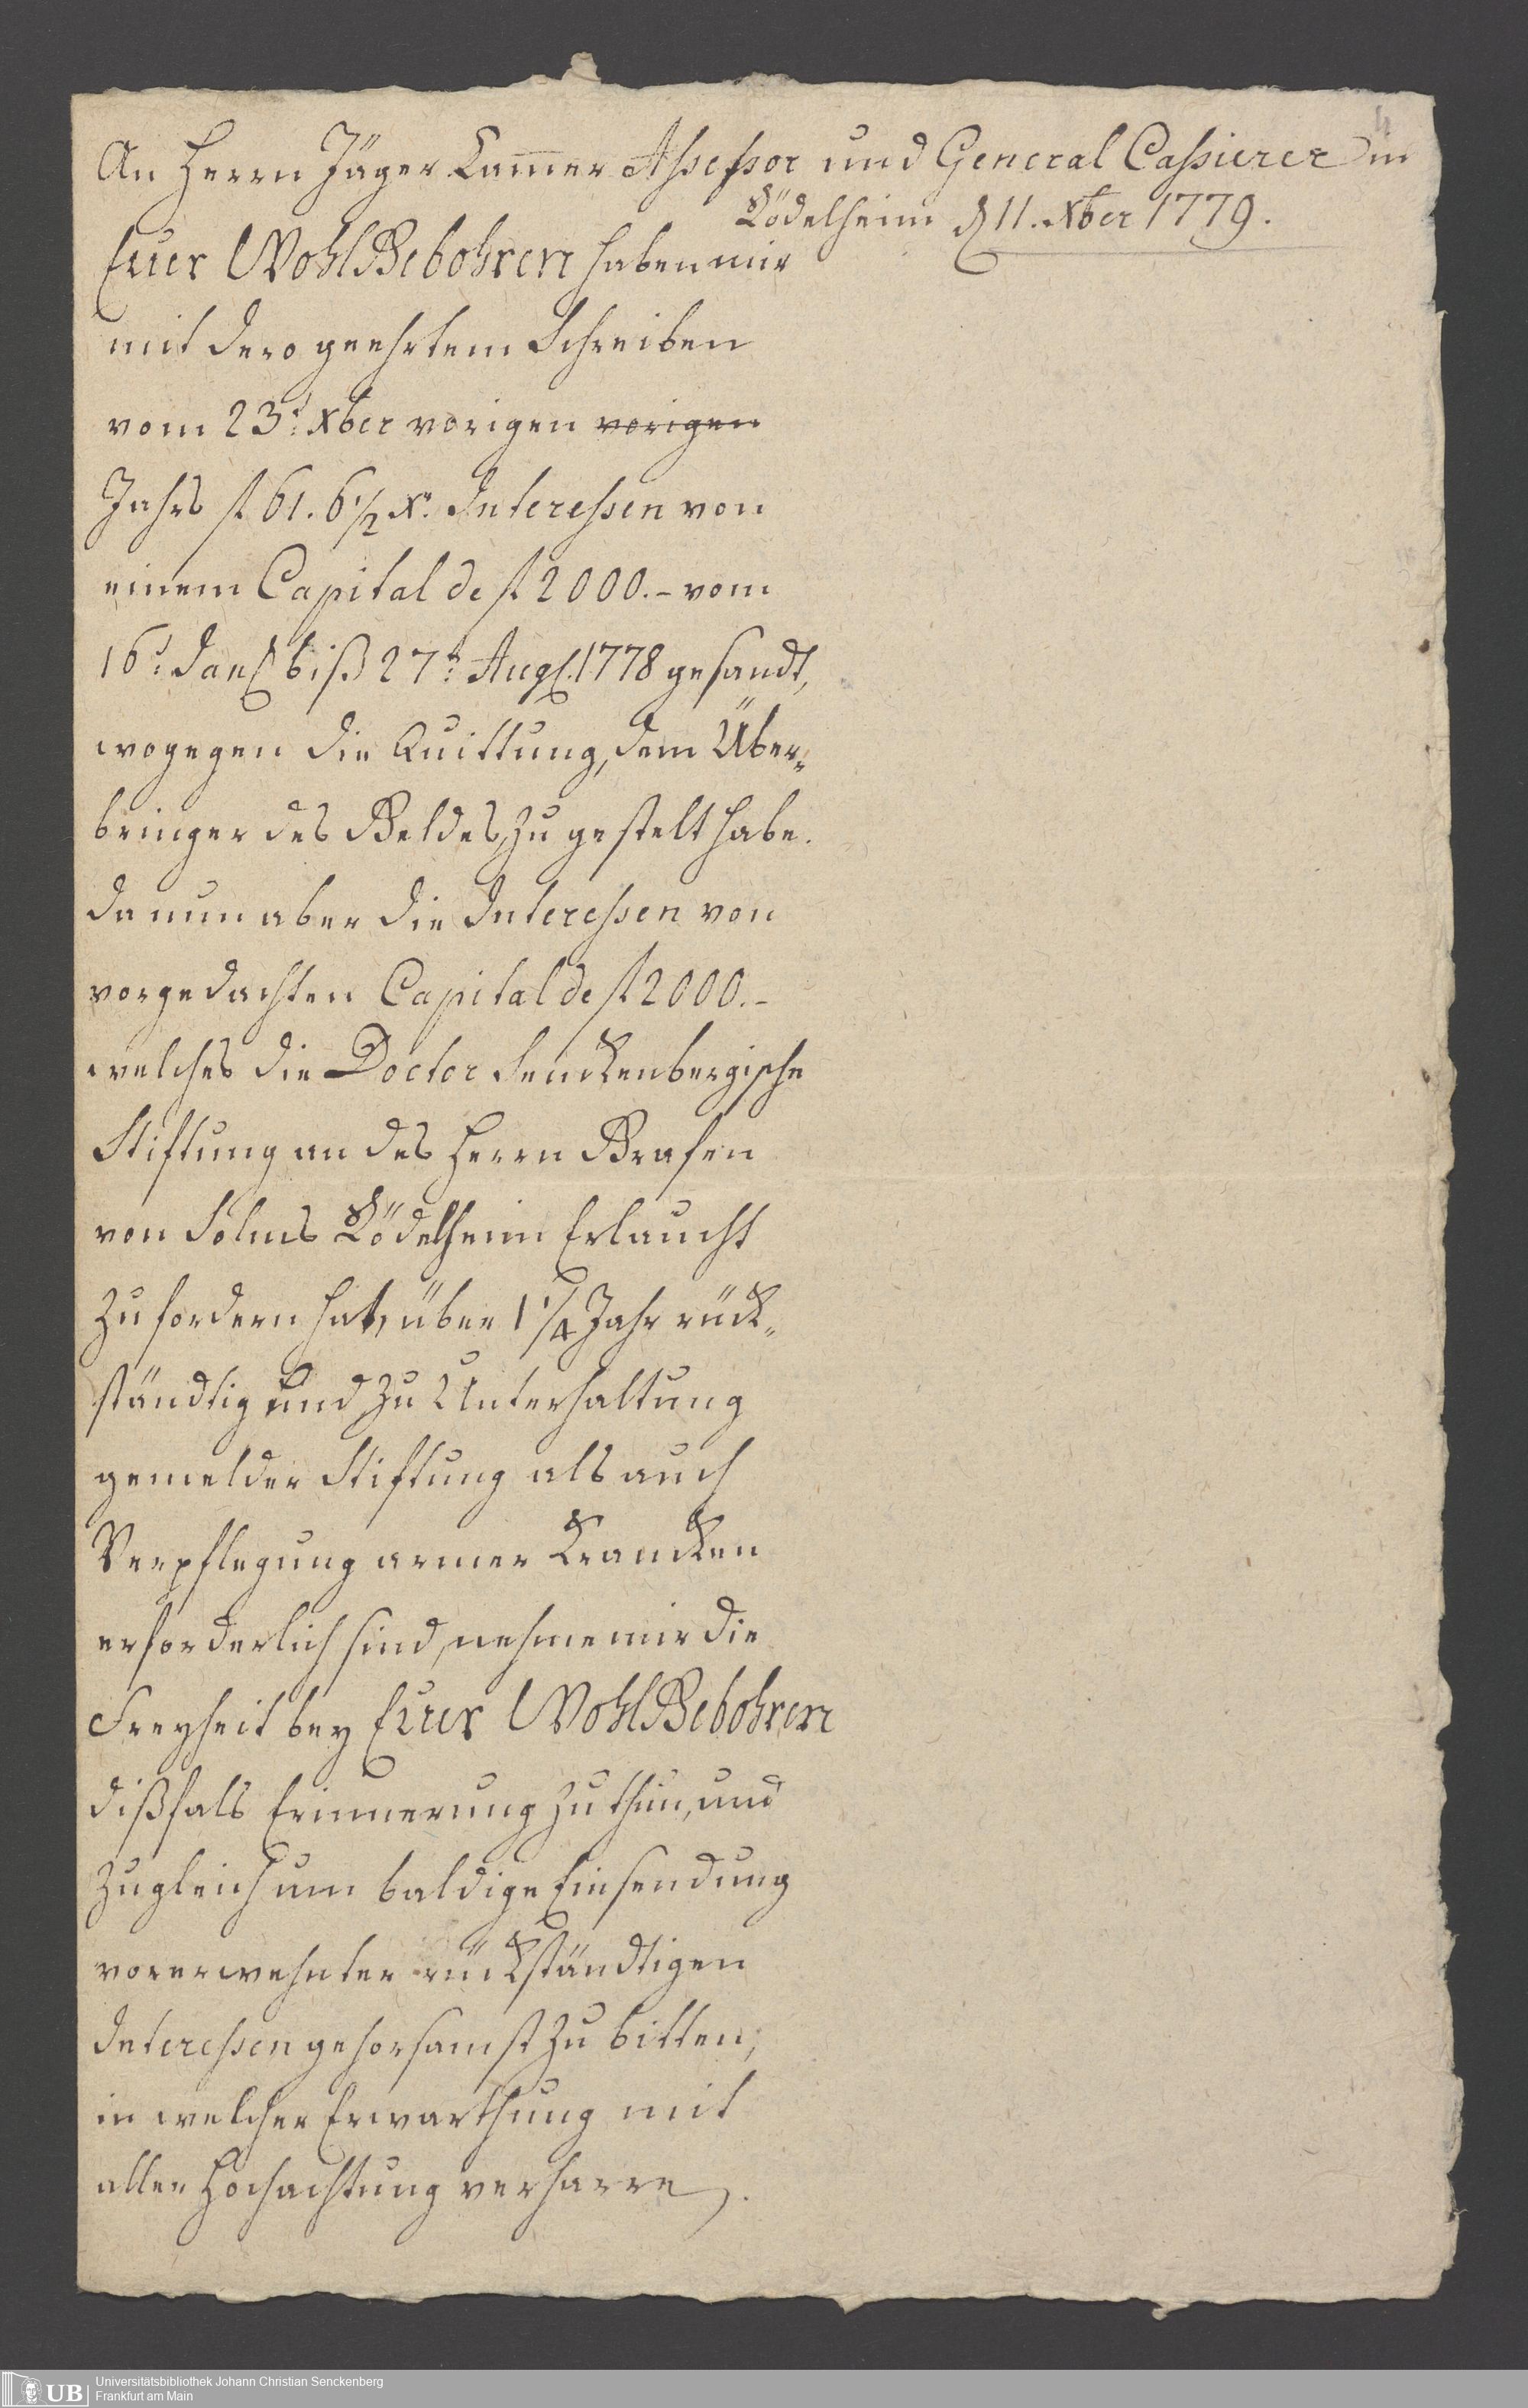 An Herrn Jäger Cam̄er Aßeßor und General Caßierer in
Rödelheim d 11. Xber 1779.
Euer WohlGebohren haben mir
mit dero geehrtem Schreiben
vom 23t Xber vorigen vorigen
Jahrs fl 61. 6 1/2 Xr. Intereßen von
einem Capital de fl 2000.- vom
16t. Jan. biß 27t. Aug. 1778 gesandt,
wogegen die Quittung, dem Über-
bringer des Geldes, zu gestelt habe.
da nun aber die Intereßen von
vorgedachten Capital de fl 2000.-
welches die Doctor Senckenbergische
Stiftung an des Herrn Grafen
von Solms Rödelheim Erlaucht
zu fordern hat, über 1 1/4 Jahr rück-
ständtig und zu Unterhaltung
gemelder Stiftung als auch
Verpflegung armer Krancken
erforderlich sind, nehme mir die
Freyheit bey Euer WohlGebohren
dißfals Erinnerung zu thun, und
zugleich um baldige Einsendung
vorerwehnter rückständtigen
Intereßen gehorsamst zu bitten,
in welcher Erwarthung mit
aller Hochachtung verharre.
Universitätsbibliothek Johann Christian Senckenberg
Frankfurt am Main
UB